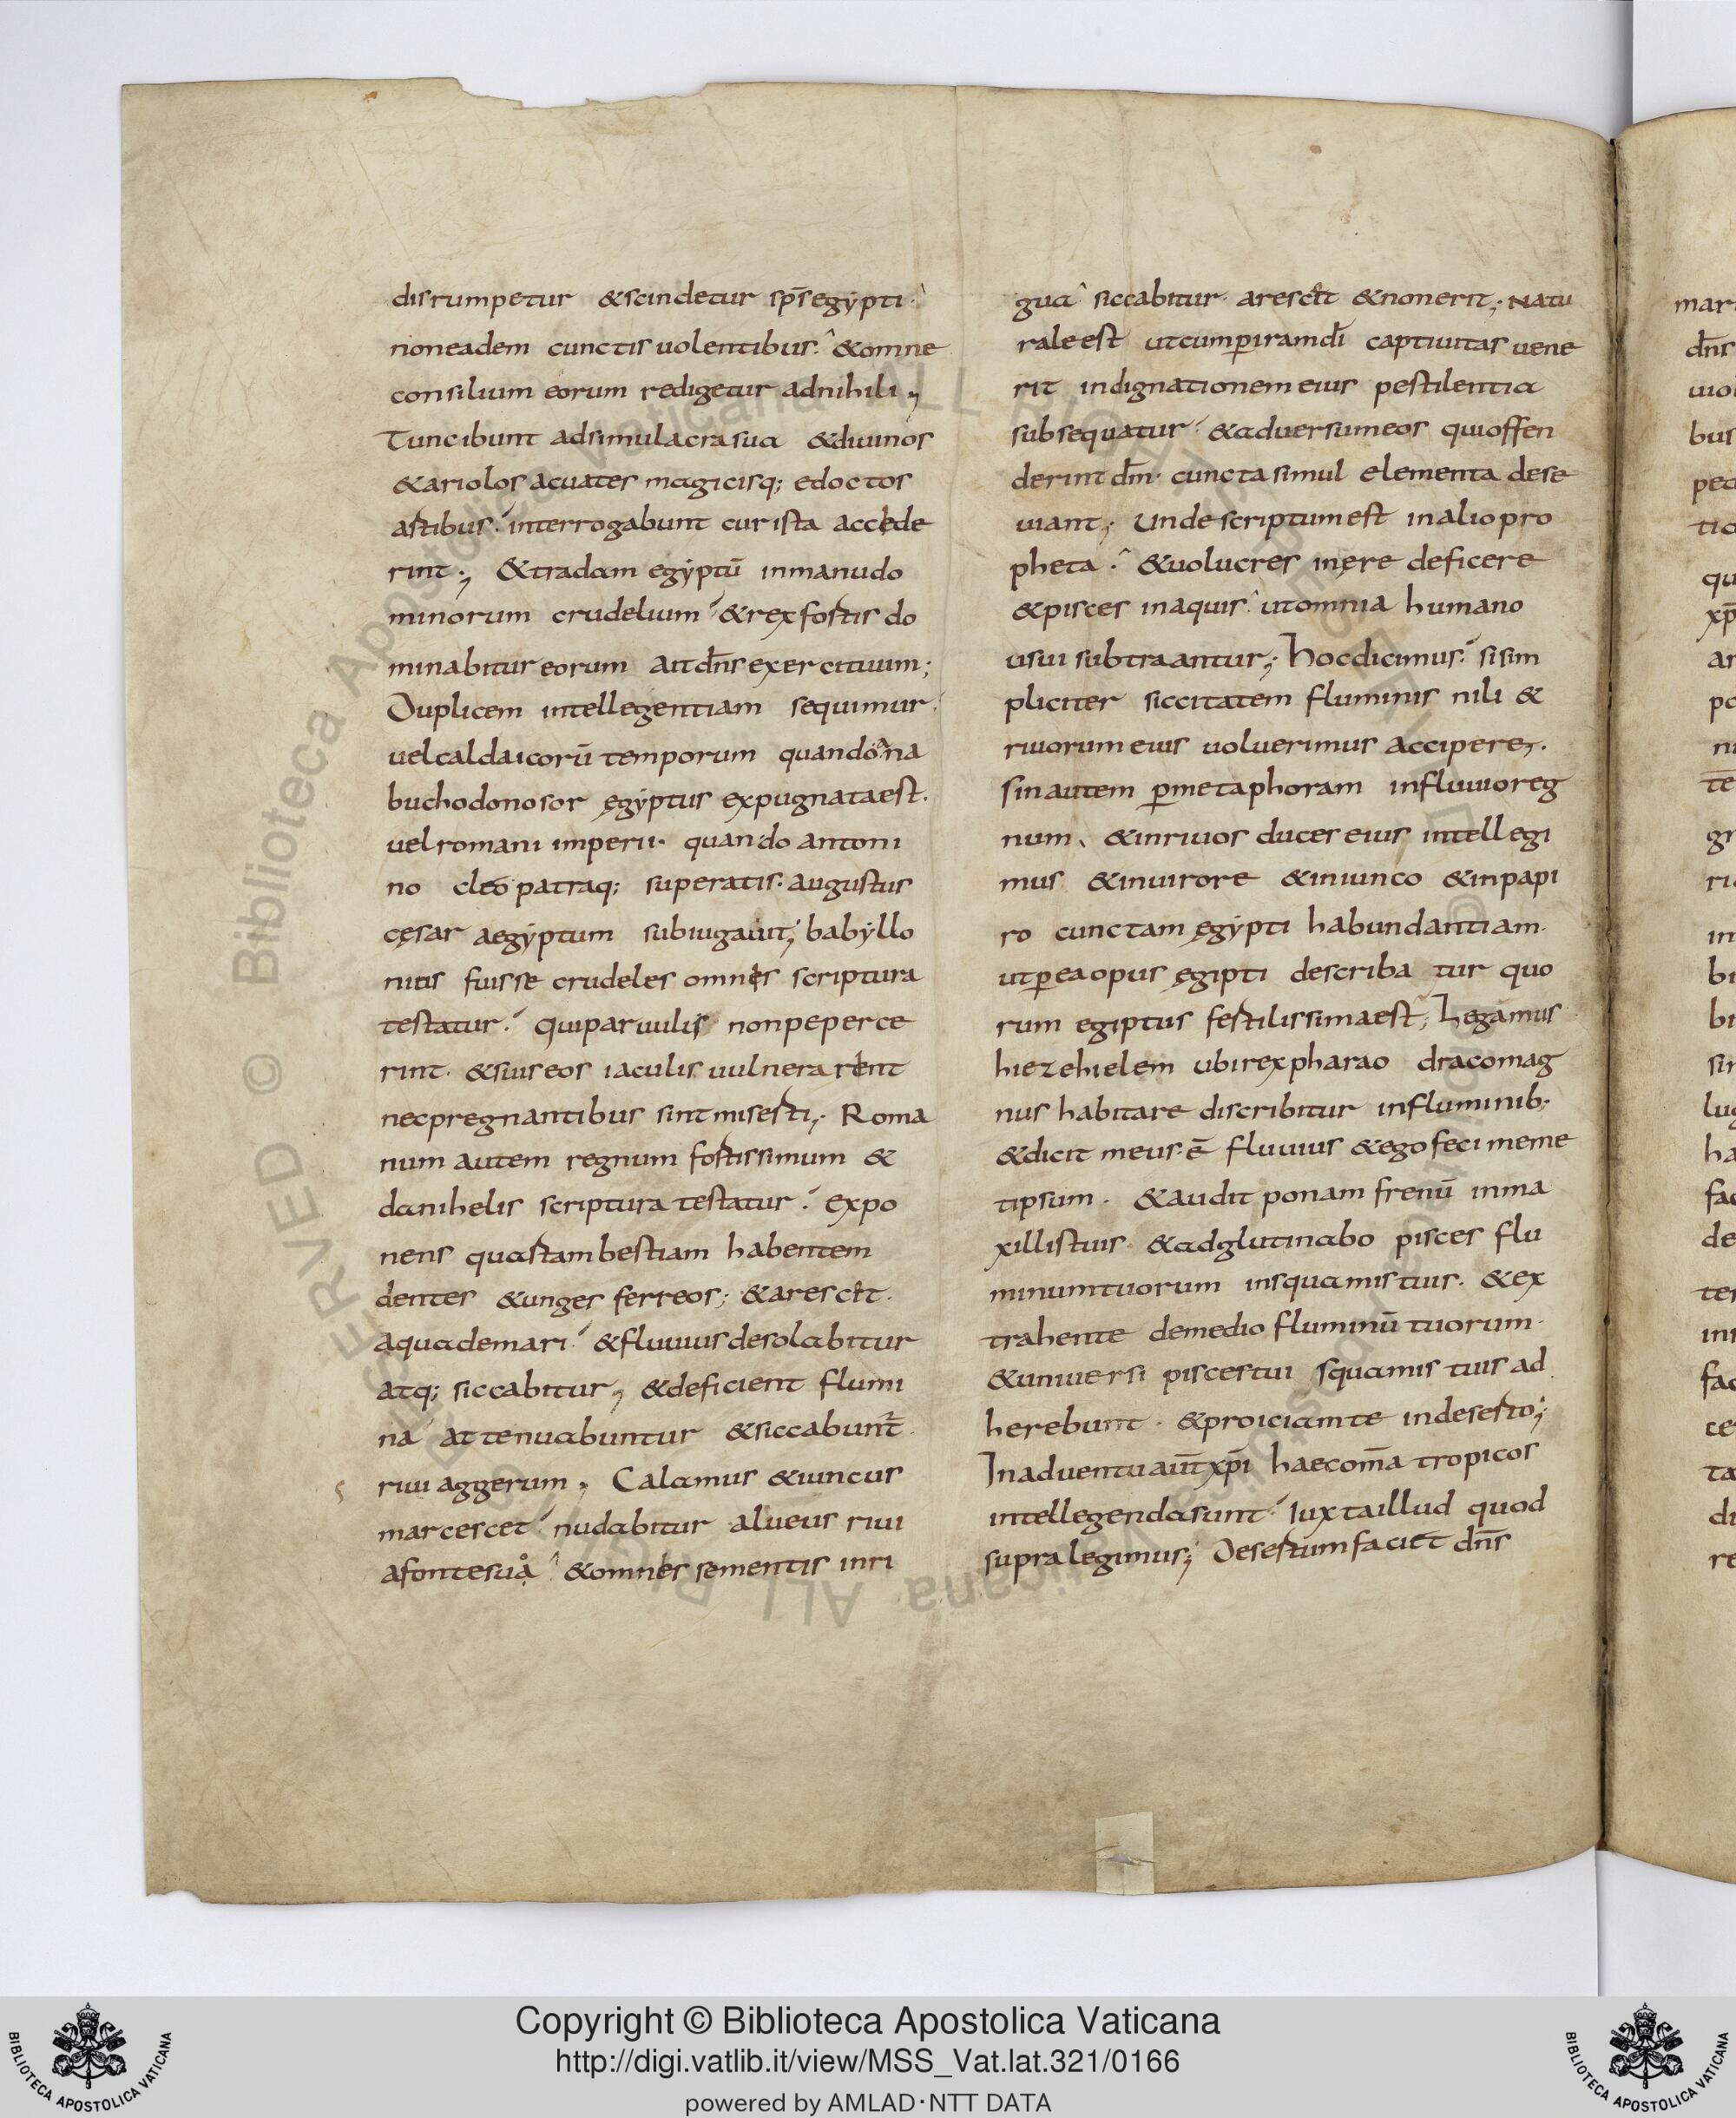 disrumpetur &scindetur sp̄s egypti·
non eadem cunctis uolentibus. &omne
consilium eorum redigetur adnihili;
Tunc ibunt adsimulacra sua &diuinos
&ariolos acuates magicisq; edoctos
artibus. interrogabunt cur ista accede
rint; &tradam egyptū inmanu do
minorum crudelium &rex fortis do
minabitur eorum ait dn̄s exercituum;
Duplicem intellegentiam sequimur.
uel caldaicorū temporum quando ana
buchodonosor ęgyptus expugnata est.
uel romani imperii· quando antoni
no cleopatraq; superatis. augustus
cęsar aegyptum subiugauit; babyllo
niis fuisse crudeles omnes scriptura
testatur. qui paruulis non peperce
rint. &suis eos iaculis uulnerarent
nec pregnantibus sint miserti; Roma
num autem regnum fortissimum &
danihelis scriptura testatur. expo
nens quartam bestiam habentem
dentes &unges ferreos; &arescit.
aqua demari &fluuius desolabitur
atq; siccabitur, &deficient flumi
na attenuabuntur &siccabunt.
riui aggerum, Calamus &iuncus
marcescet nudabitur alueus riui
afonte sua &omnes sementis inri
gua siccabitur. arescit &non erit; Natu
rale est ut cum piramdi captiuitas uene
rit indignationem eius pestilentia
subsequatur &aduersum eos qui offen
derint dm̄. cuncta simul elementa dese
uiant; Unde scriptum est inalio pro
pheta. &uolucres inęre deficere
&pisces inaquis. ut omnia humano
usui subtraantur; Hoc dicimus. si sim
pliciter siccitatem fluminis nili &
riuorum eius uoluerimus accipere;
sin autem p metaphoram influuio reg
num, &inriuos duces eius intellegi
mus &inuirore &iniunco &inpapi
ro cunctam ęgypti habundantiam.
ut p ea opus ęgipti describatur quo
rum egiptus fertilissima est; Legamus
hiezehielem ubi rex pharao draco mag
nus habitare discribitur influminib;
&dicit meus ē fluuius &ego feci meme
tipsum. &audit ponam frenū inma
xillis tuis. &adglutinabo pisces flu
minum tuorum insquamis tuis. &ex
trahente demedio fluminū tuorum.
&uniuersi pisces tui squamis tuis ad
herebunt. &proiciam te indeserto;
Inaduentu aut̄ xp̄i haec om̄a tropicos
intellegenda sunt Iuxta illud quod
supra legimus; Desertum faciet dn̄s
Copyright © Biblioteca Apostolica Vaticana
http://digi.vatlib.it/view/MSS_Vat.lat.321/0166
powered by AMLAD·NTT DATA
BIBLIOTECA APOSTOLICA VATICANA
BIBLIOTECA APOSTOLICA VATICANA